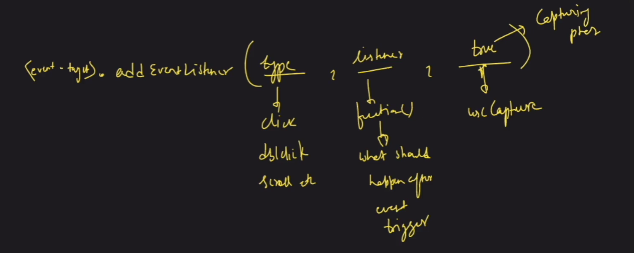 (event-target). addEventListener (type, listner, true) → Capturing phase
click
dblclick
scroll etc
function()
what should
happen after
event
trigger
useCapture